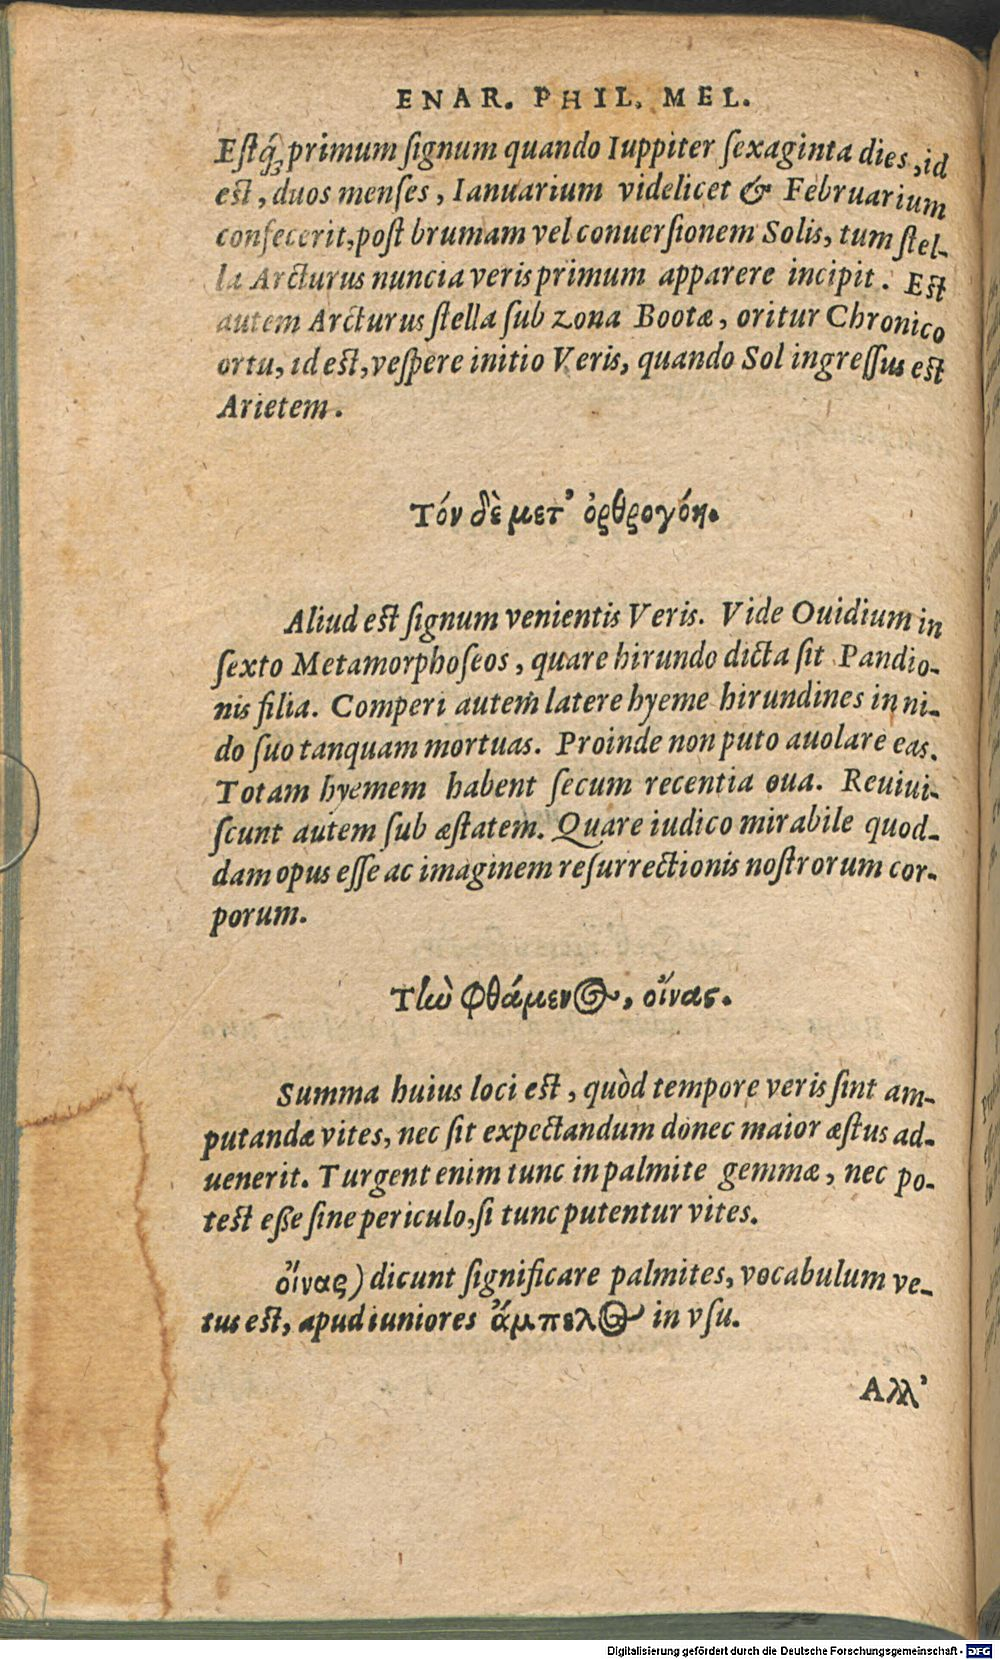 ENAR. PHIL. MEL.
Estq́ꝫ primum ſignum quando Iuppiter ſexaginta dies, id
est, duos menſes, Ianuarium videlicet & Februarium
confecerit, poſt brumam vel conuerſionem Solis, tum ſtel-
la Arcturus nuncia veris primum apparere incipit. Est
autem Arcturus ſtella ſub zona Bootæ, oritur Chronico
ortu, id est, veſpere initio Veris, quando Sol ingreſſus est
Arietem.
Τόν δὲ μετ' ὀρθρογόη.
Aliud est ſignum venientis Veris. Vide Ouidium in
ſexto Metamorphoſeos, quare hirundo dicta ſit Pandio-
nis filia. Comperi autem latere hyeme hirundines in ni-
do ſuo tanquam mortuas. Proinde non puto auolare eas.
Totam hyemem habent ſecum recentia oua. Reuiui-
ſcunt autem ſub æſtatem. Quare iudico mirabile quod-
dam opus eſſe ac imaginem reſurrectionis noſtrorum cor-
porum.
Τὼ φθάμενος, οἴνας.
Summa huius loci est, quòd tempore veris ſint am-
putandæ vites, nec ſit expectandum donec maior æſtus ad-
uenerit. Turgent enim tunc in palmite gemmæ, nec po-
test eße ſine periculo, ſi tunc putentur vites.
οἴνας) dicunt ſignificare palmites, vocabulum ve-
tus est, apud iuniores ἄμπελος in vſu.
Αλλ'
Digitalisierung gefördert durch die Deutsche Forschungsgemeinschaft - DFG